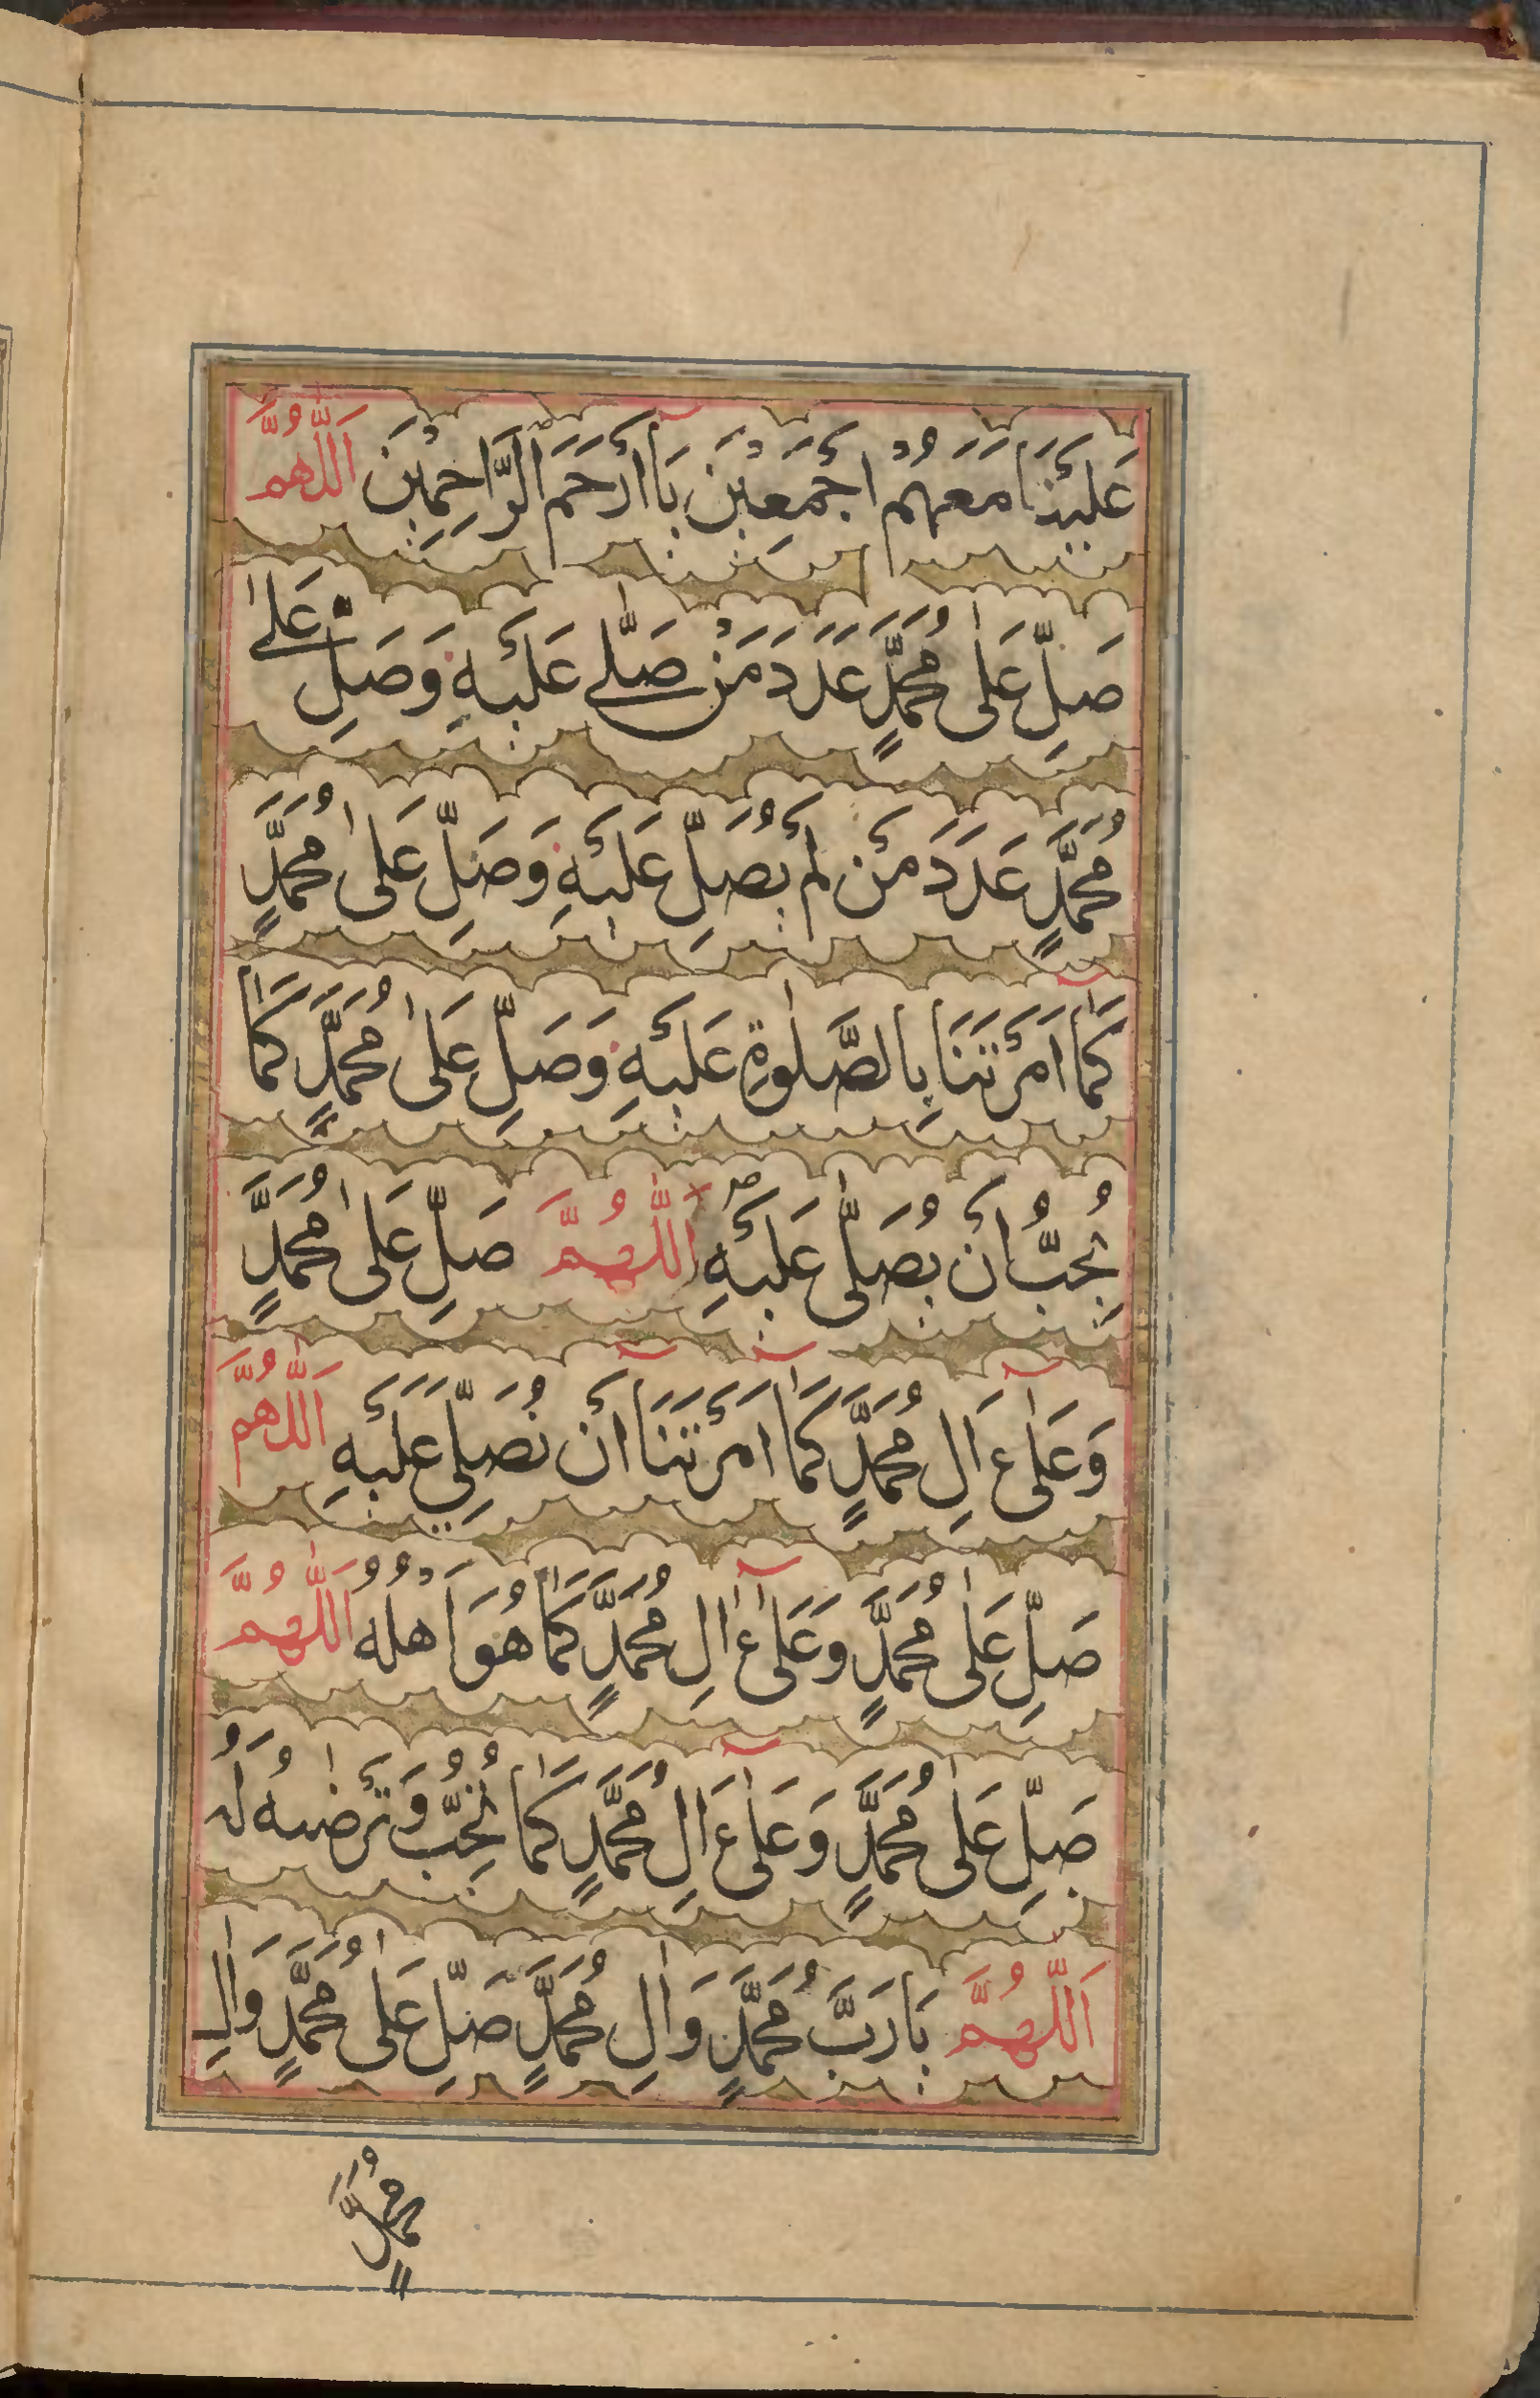 عَلَيْنَا مَعَهُمْ اَجْمَعِيْنَ يَا اَرْحَمَ الرَّاحِمِيْنَ اَللّٰهُمَّ
صَلِّ عَلٰى مُحَمَّدٍ عَدَدَ مَنْ صَلّٰى عَلَيْهِ وَصَلِّ عَلٰى
مُحَمَّدٍ عَدَدَ مَنْ لَمْ يُصَلِّ عَلَيْهِ وَصَلِّ عَلٰى مُحَمَّدٍ
كَمَا اَمَرْتَنَا بِالصَّلٰوةِ عَلَيْهِ وَصَلِّ عَلٰى مُحَمَّدٍ كَمَا
تُحِبُّ اَنْ يُصَلّٰى عَلَيْهِ اَللّٰهُمَّ صَلِّ عَلٰى مُحَمَّدٍ
وَعَلٰى ءَالِ مُحَمَّدٍ كَمَا اَمَرْتَنَا اَنْ نُصَلِّيَ عَلَيْهِ اَللّٰهُمَّ
صَلِّ عَلٰى مُحَمَّدٍ وَعَلٰى ءَالِ مُحَمَّدٍ كَمَا هُوَ اَهْلُهُ اَللّٰهُمَّ
صَلِّ عَلٰى مُحَمَّدٍ وَعَلٰى ءَالِ مُحَمَّدٍ كَمَا تُحِبُّ وَتَرْضٰىهُ لَهُ
اَللّٰهُمَّ يَا رَبَّ مُحَمَّدٍ وَاٰلِ مُحَمَّدٍ صَلِّ عَلٰى مُحَمَّدٍ وَاٰلِ
مُحَمَّدٍ